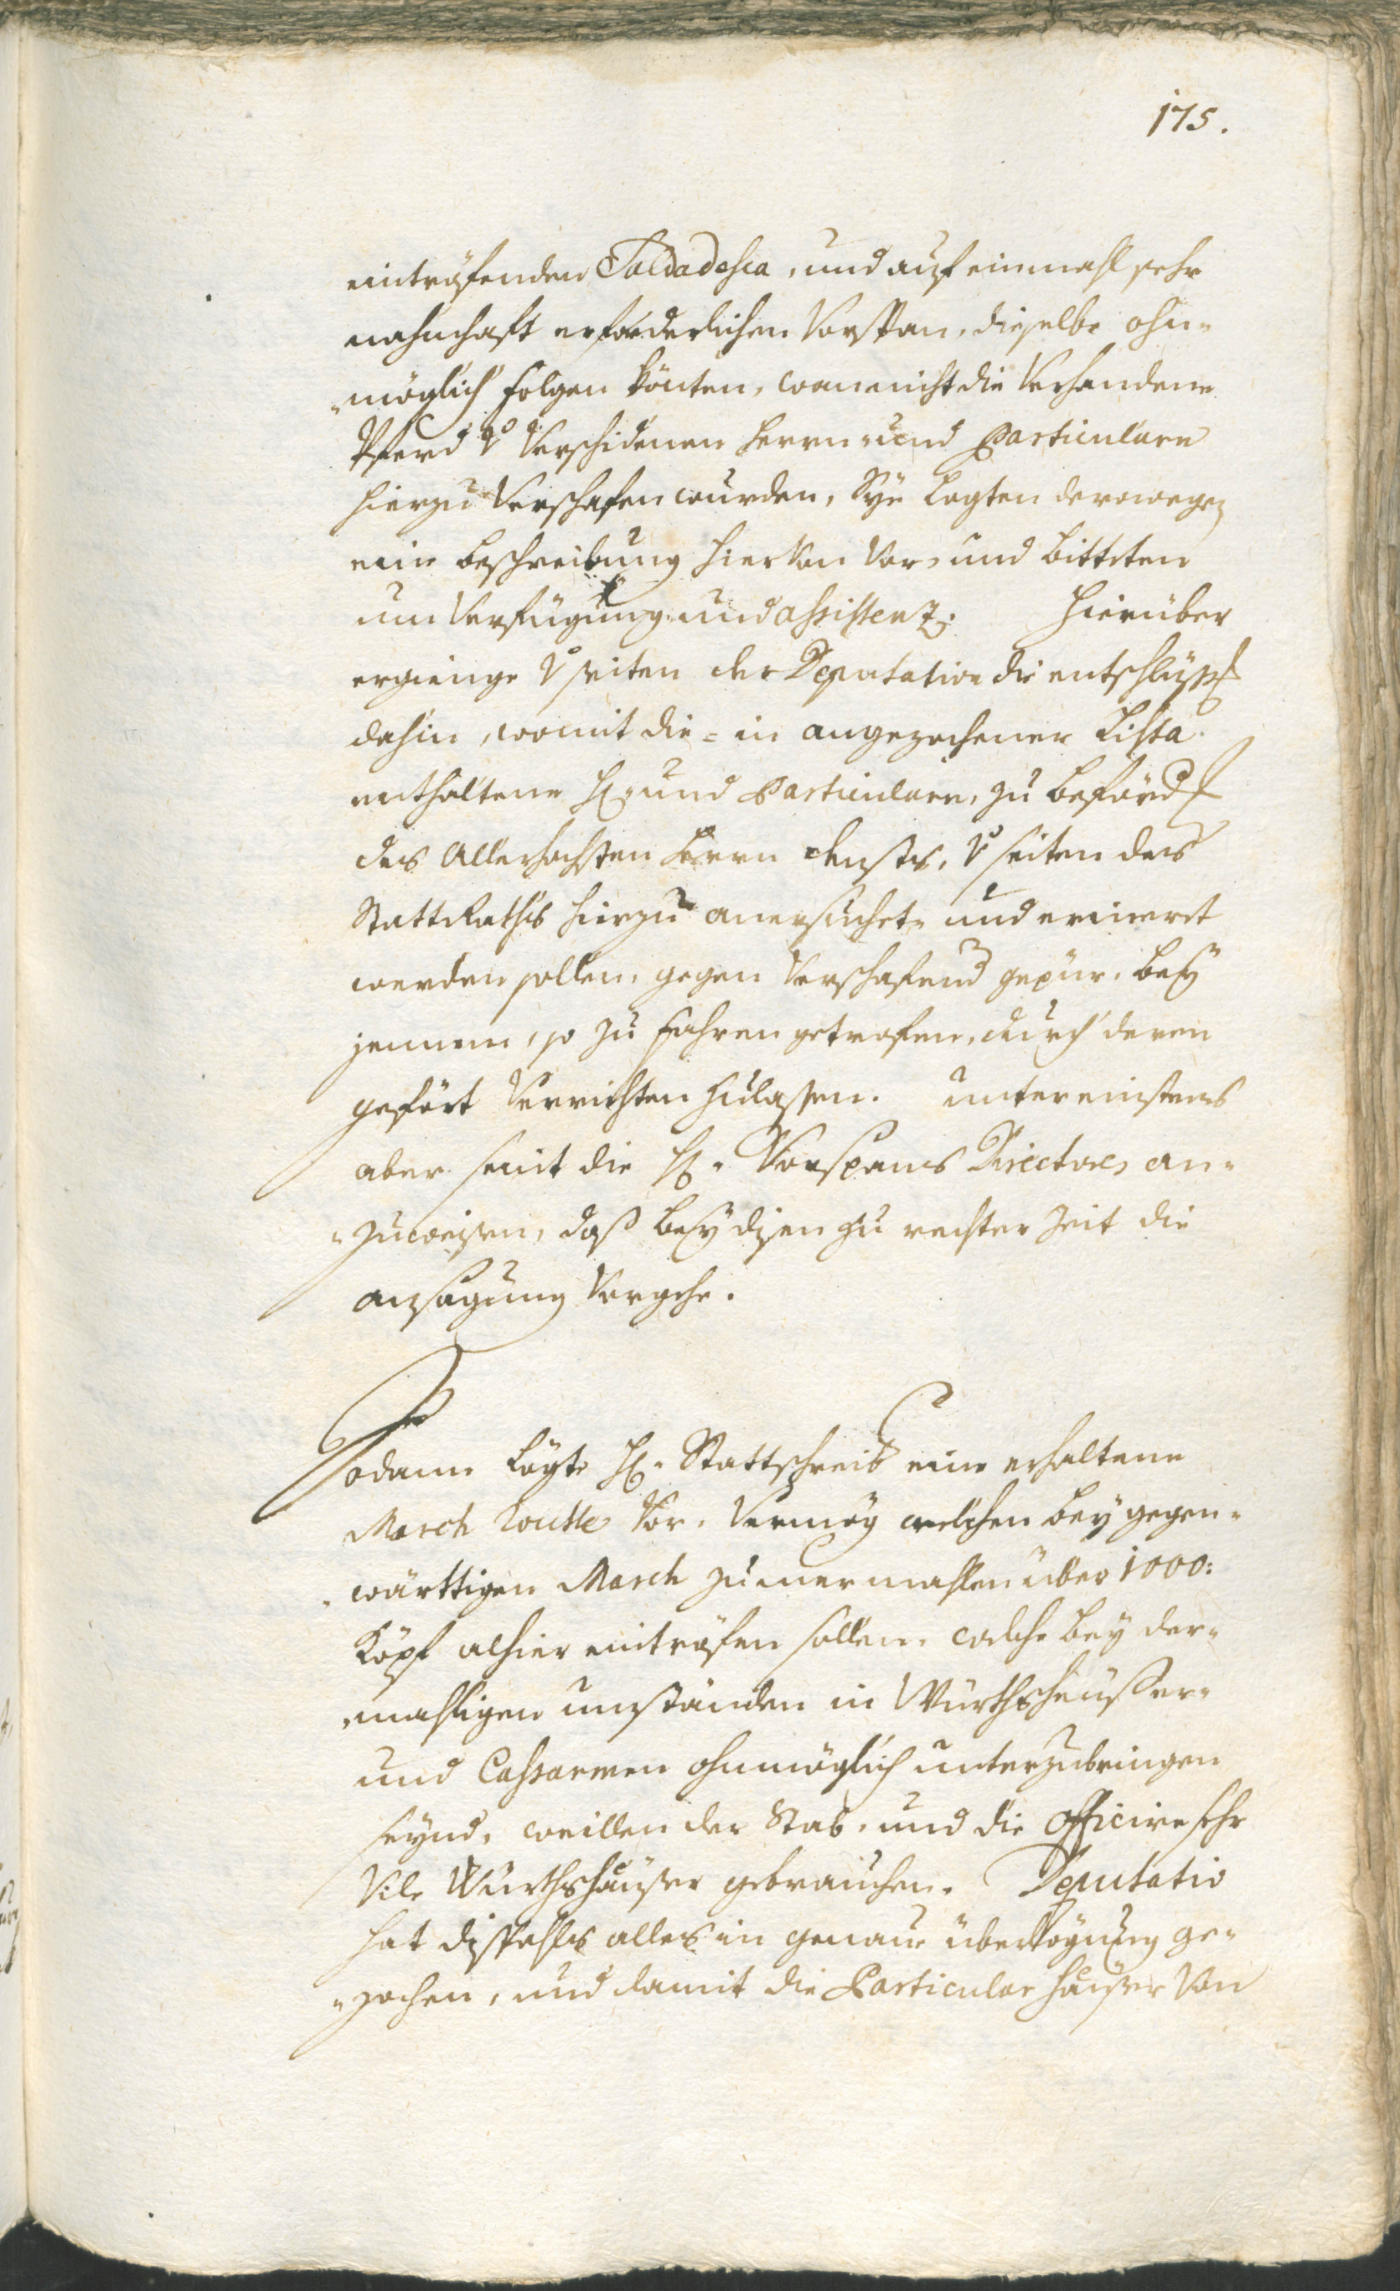 175.
einträfenden Soldadesca, und auf einmahl sehr
nahmhaft erforderlichen Vorspan, dieselbe ohn-
möglich folgen könten, wan nicht die Verhandene
Pferd v Verschidenen Herrn- und Particularn
hierzu Verschafen wurden, Sye Legten derowegen
eine beschreibung hierVon Vor- und bitteten
um Verfügung- und assistenz. Hierüber
ergienge v seiten der Deputation die entschlüss
dahin, womit die- in angezochener Lista
enthaltene H: und Particularn, zu beförd
des Allerhöchsten Herrn diensts, v seiten des
StattRaths hierzu anersuchet- und erineret
werden sollen, gegen Verschafend gepür, bey
jennem, so zu fahren getrofen, durch deren
gefört Verrichten zulassen. unter einstens
aber seint die H. Vorspans Directores an-
zuweisen, dass bey disen zu rechter Zeit die
ansagung Vorgehe.
Sodann Legte H. Stattschreib eine erhaltene
March Routte Vor, Vermög welchen bey gegen-
wärttigen March zumermahlen über 1000:
Köpf alhier einträfen sollen, welche bey der-
mahligen umständen in Würthsheusser-
und Cassarmen ohnmöglich unterzubringen
seynd, weillen der Stab- und die officire sehr
Vile Würthsheuser gebrauchen. Deputatio
hat disfahls alles in genaue überlögung ge-
zochen, und damit die Particular heuser Von